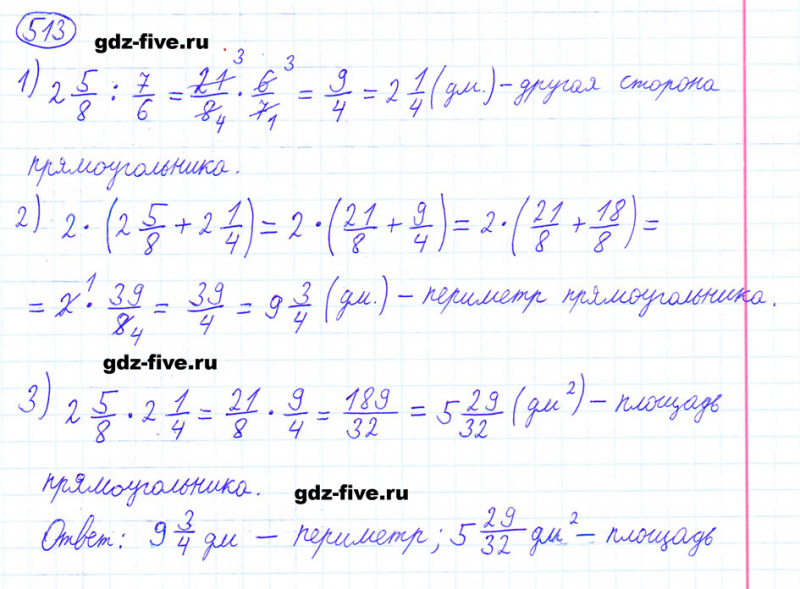 513
gdz-five.ru
1) 2 5/8 : 7/6 = 21/8 · 6/7 = 9/4 = 2 1/4 (дм.) – другая сторона
прямоугольника.
2) 2 · (2 5/8 + 2 1/4) = 2 · (21/8 + 9/4) = 2 · (21/8 + 18/8) =
= 2 · 39/8 = 39/4 = 9 3/4 (дм.) – периметр прямоугольника.
gdz-five.ru
3) 2 5/8 · 2 1/4 = 21/8 · 9/4 = 189/32 = 5 29/32 (дм²) – площадь
прямоугольника.
gdz-five.ru
Ответ: 9 3/4 дм – периметр; 5 29/32 дм² – площадь